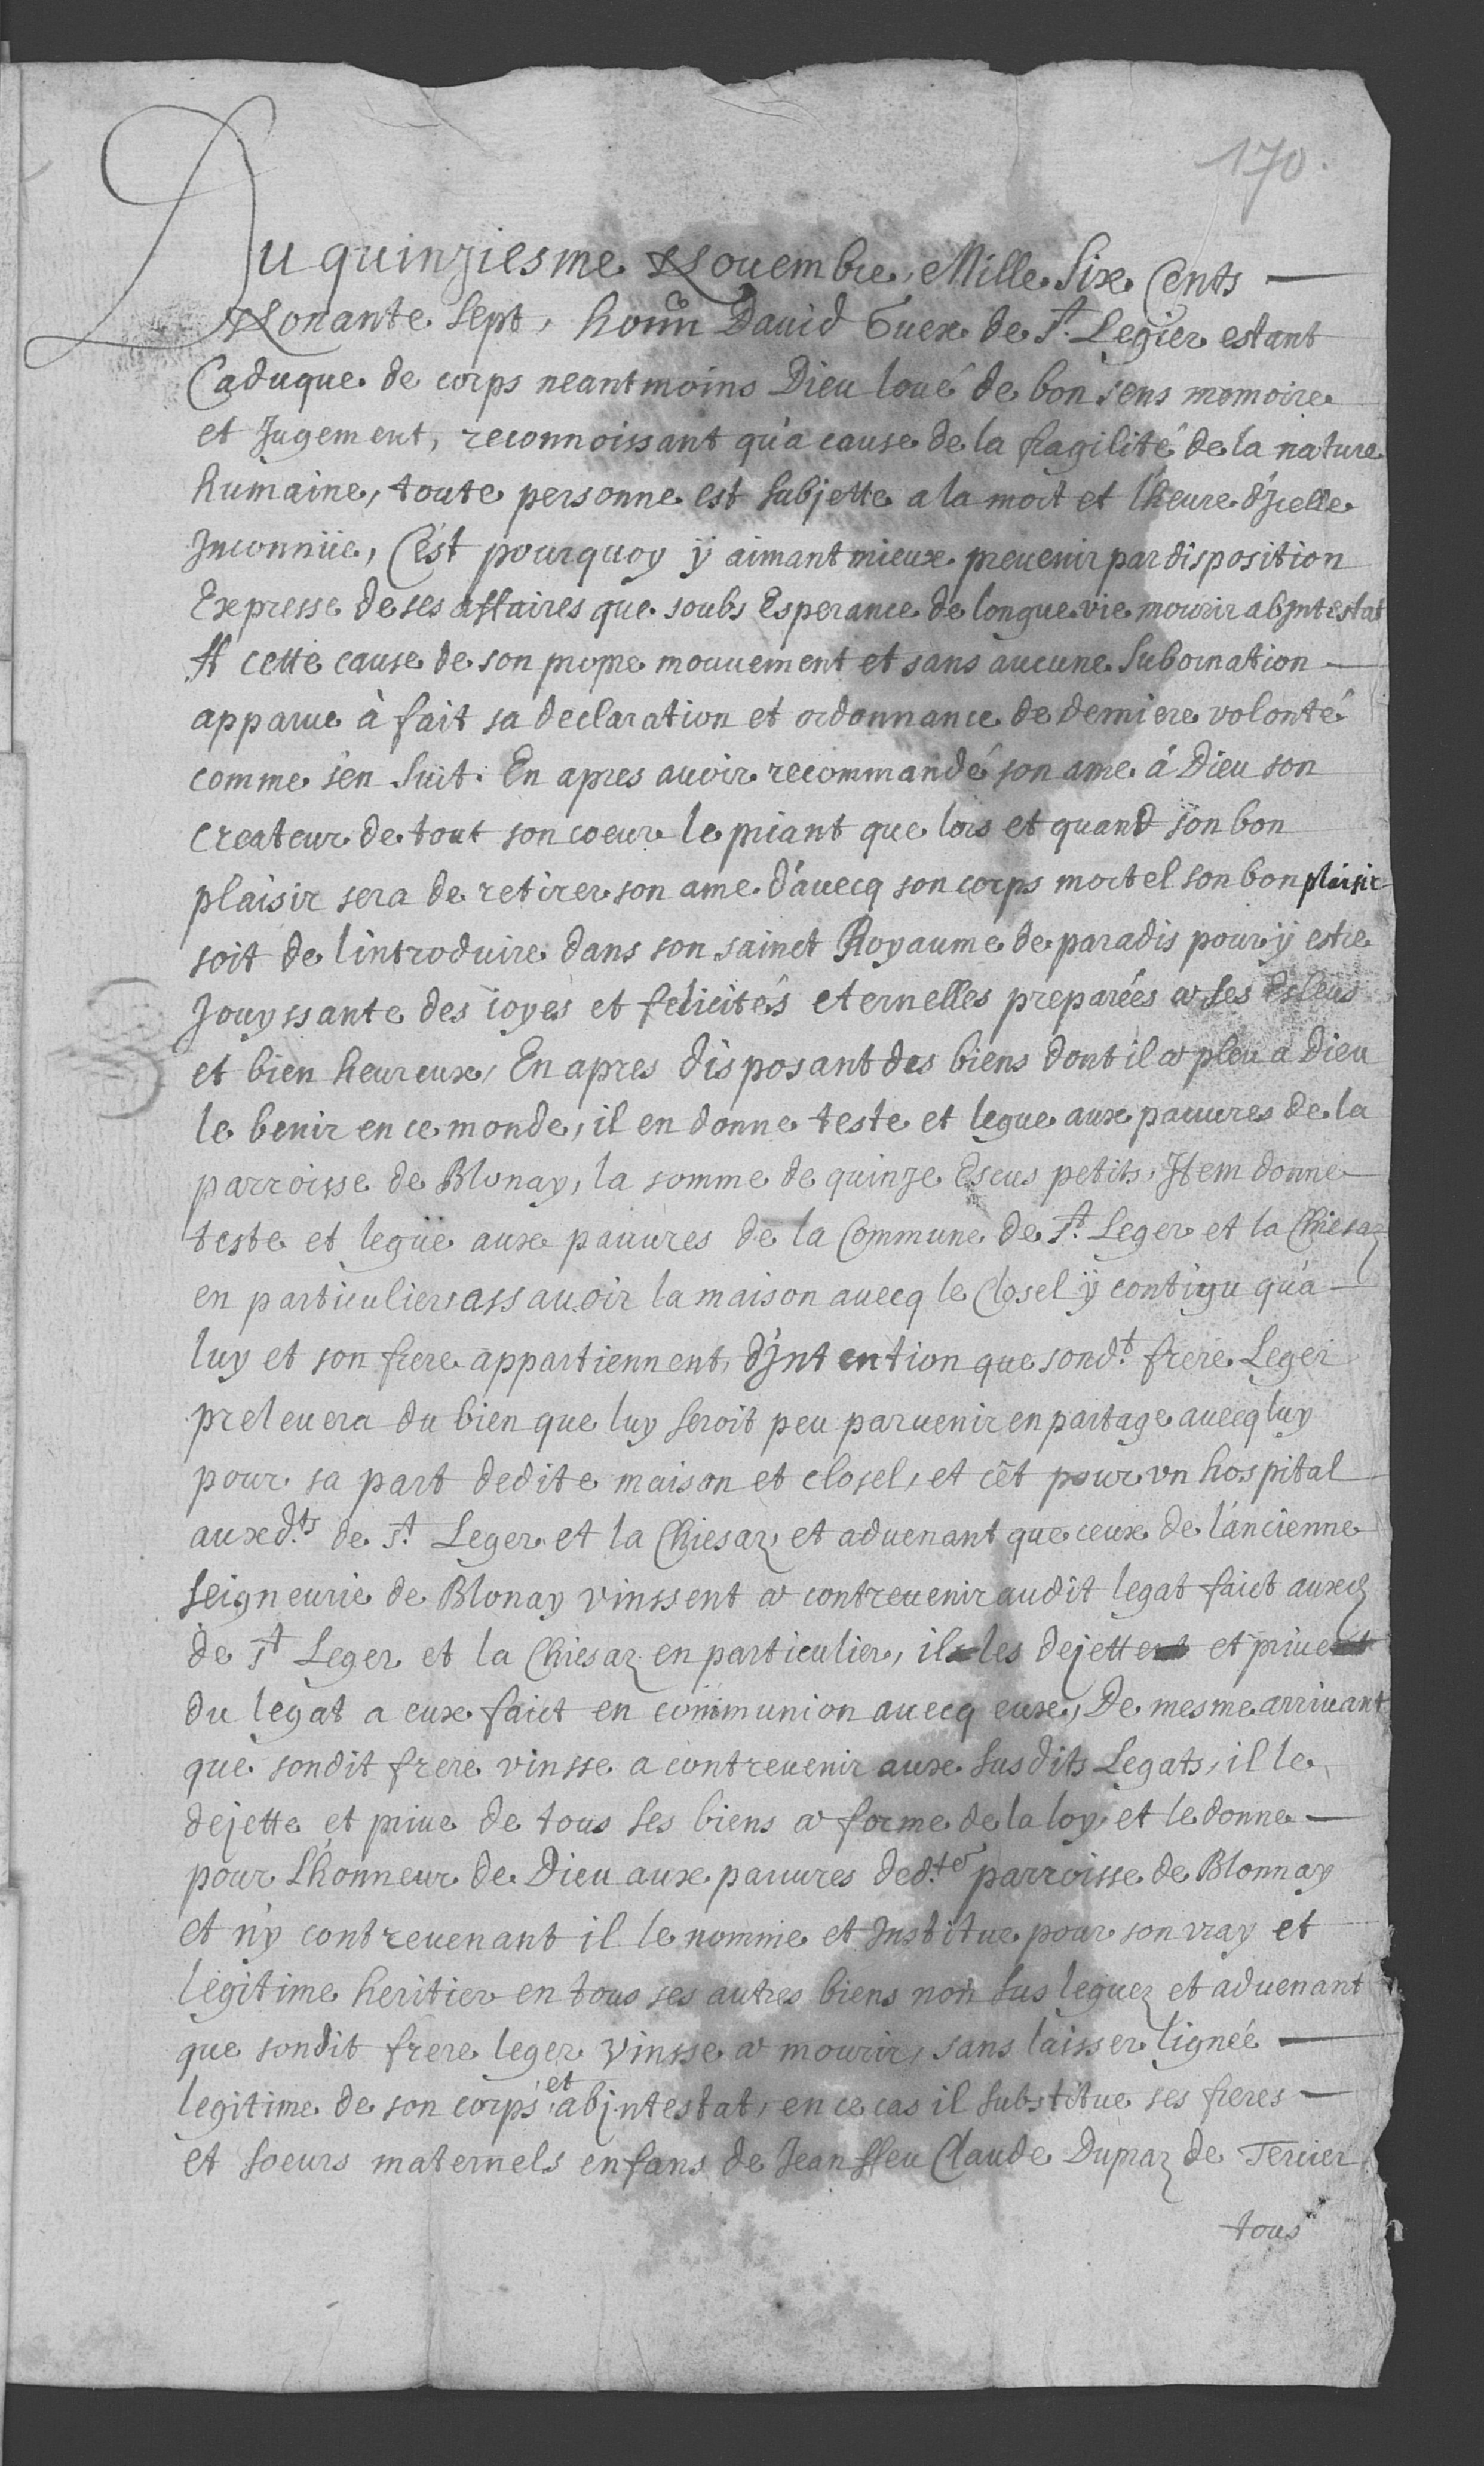 170.
Du quinziesme Novembre, Mille Six Cents —
Nonante Sept, honn David Guex de St. Legier estant
Caduque de corps neantmoins Dieu loué de bon sens memoire
et Jugement, reconnoissant qu'a cause de la fragilité de la nature
humaine, toute personne est Subjette a la mort et l'heure d'Jcelle
Jnconnüe, C'est pourquoy ÿ aimant mieux preuenir par disposition
Expresse de ses affaires que soubs Esperance de longue vie mourir abjntestat
A cette cause de son propre mouuement et sans aucune Subornation —
apparue à fait sa declaration et ordonnance de derniere volonté
comme s'en Suit. En apres auoir recommandé son ame à Dieu son
Createur de tout son coeur le priant que lors et quand son bon
plaisir sera de retirer son ame d'auecq son corps mortel son bon plaisir
soit de l'introduire dans son sainct Royaume de paradis pour ÿ estre
Jouyssante des ioyes et felicités eternelles preparées a ses Esleus
et bien heureux, En apres disposant des biens dont il a pleu a Dieu
le benir en ce monde, il en donne teste et legue aux pauures de la
parroisse de Blonay, la somme de quinze Escus petits, Jtem donne
teste et legüe aux pauures de la Commune de St. Leger et la Chiesaz
en particulier assauoir la maison auecq le Closel ÿ contigu qu'a —
luy et son frere appartiennent, d'Jntention que sond.t frere Leger
preleuera du bien que luy seroit peu paruenir en partage auecq luy
pour sa part dedite maison et closel, et cêt pour vn hospital
auxd.ts de St. Leger et la Chiesaz, et aduenant que ceux de l'ancienne
Seigneurie de Blonay vinssent a contreuenir audit legat faict auxd
de St Leger et la Chiesaz en particulier, il les dejette et priue
du legat a eux faict en communion auecq eux, De mesme arriuant
que sondit frere vinsse a contreuenir aux susdits Legats, il le
dejette et priue de tous ses biens a forme de la loy, et le donne —
pour L'honneur de Dieu aux pauures ded.te parroisse de Blonnay
et n'y contreuenant il le nomme et Jnstitue pour son vray et
legitime heritier en tous ses autres biens non sus leguez et aduenant
que sondit frere leger vinsse a mourir, sans laisser lignée —
legitime de son corps et abjntestat, en ce cas il substitue ses freres —
et soeurs maternels enfans de Jean ffeu Claude Dupraz de Tercier
tous